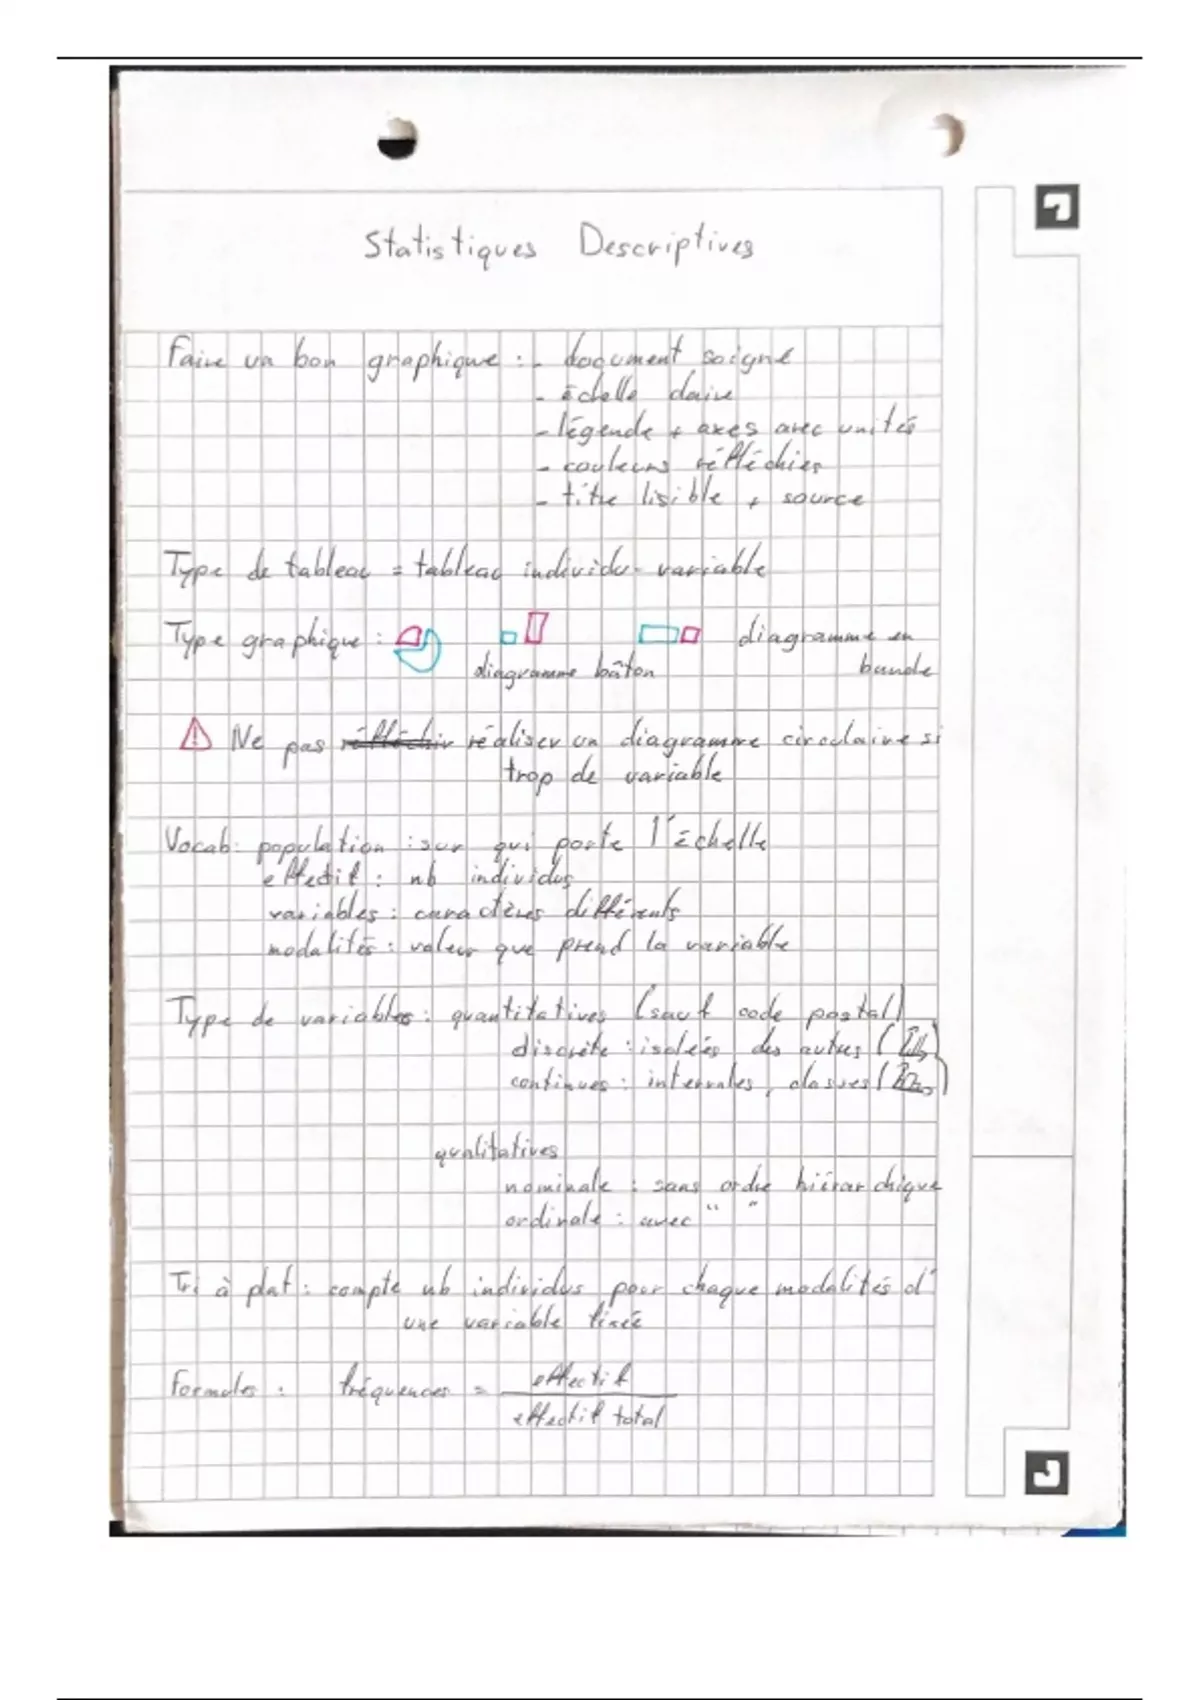 Statistiques Descriptives
Faire un bon graphique : - document soigné
- échelle claire
- légende + axes avec unités
- couleurs réfléchies
- titre lisible + source
Type de tableau = tableau individu-variable
Type graphique : diagramme en
diagramme bâton bande
Ne pas réfléchir réaliser un diagramme circulaire si
trop de variable
Vocab: population : sur qui porte l'échelle
effectif : nb individus
variables : caractères différents
modalités : valeur que prend la variable
Type de variables : quantitatives (sauf code postal)
discrète : isolées des autres
continues : intervalles, classes
qualitatives
nominale : sans ordre hiérarchique
ordinale : avec " "
Tri à plat : compte nb individus pour chaque modalités d'
une variable fixée
Formules : fréquences = effectif
effectif total